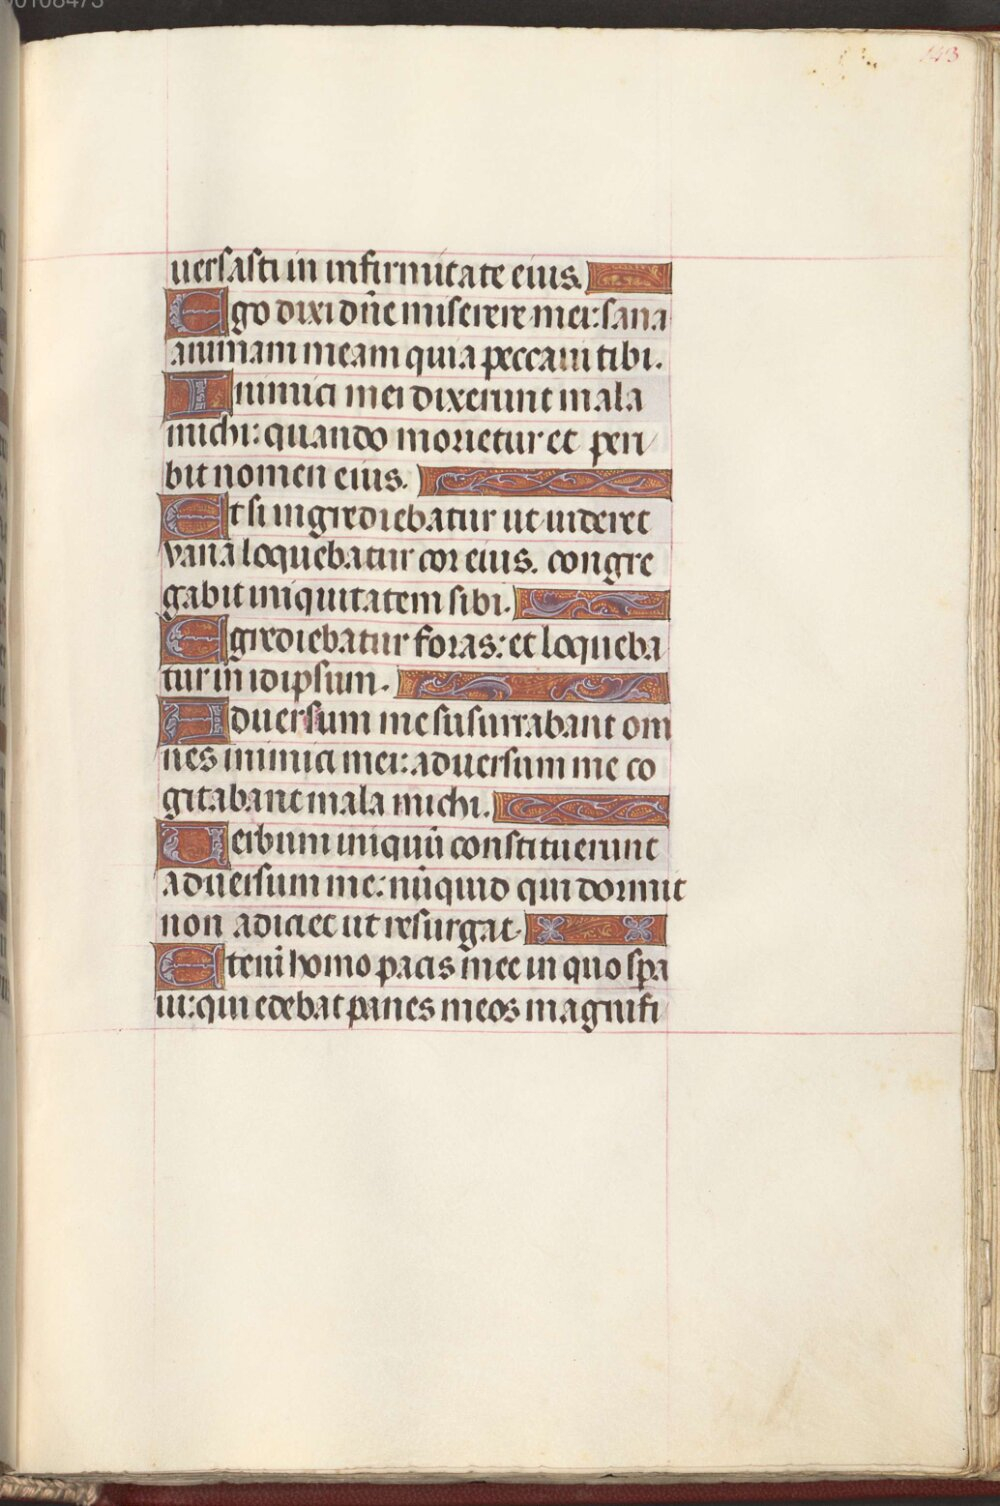 143
uersasti in infirmitate eius.
Ego dixi dñe miserere mei: sana
animam meam quia peccaui tibi.
Inimici mei dixerunt mala
michi: quando morietur et peri
bit nomen eius.
Et si ingrediebatur ut uideret
vana loquebatur cor eius. congre
gabit iniquitatem sibi.
Egrediebatur foras: et loqueba
tur in idipsum.
Aduersum me susurrabant om
nes inimici mei: aduersum me co
gitabant mala michi.
Verbum iniquũ constituerunt
aduersum me: nũquid qui dormit
non adiciet ut resurgat.
Etenĩ homo pacis mee in quo spa
ui: qui edebat panes meos magnifi